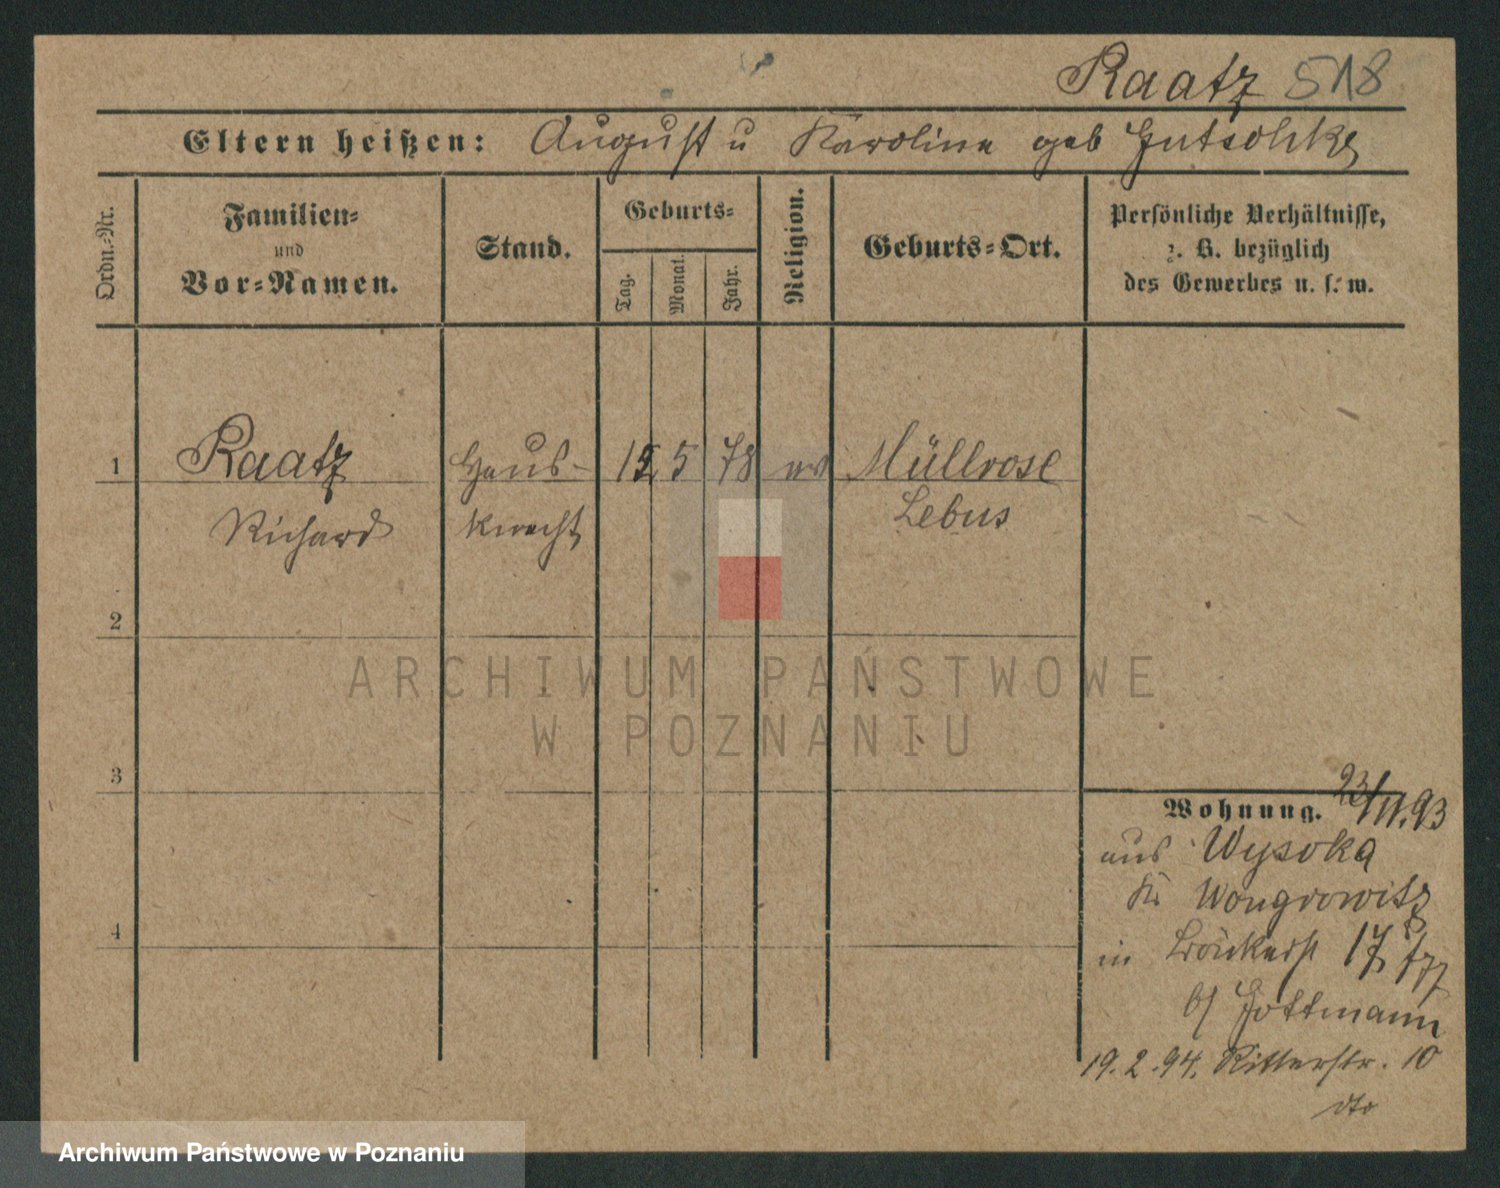 Raatz 518
Eltern heißen: August u Karoline geb Gutschke
Ordn.-Nr.
Familien-
und
Vor-Namen.
Stand.
Geburts-
Tag.
Monat.
Jahr.
Religion.
Geburts-Ort.
Persönliche Verhältnisse,
z. B. bezüglich
des Gewerbes u. s. w.
1 Raatz Haus- 15 5 78 ev Müllrose
Richard knecht Lebus
2
3
4
Wohnung. 23/11.93
aus Wysoka
Kr Wongrowitz
in 17
b/ Gottmann
19.2.94. Ritterstr. 10
dto
ARCHIWUM PAŃSTWOWE
W POZNANIU
Archiwum Państwowe w Poznaniu